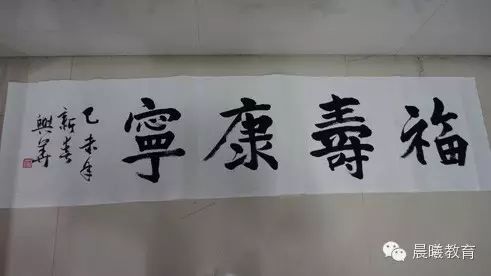 福壽康寧
乙未年
新春
晨曦教育